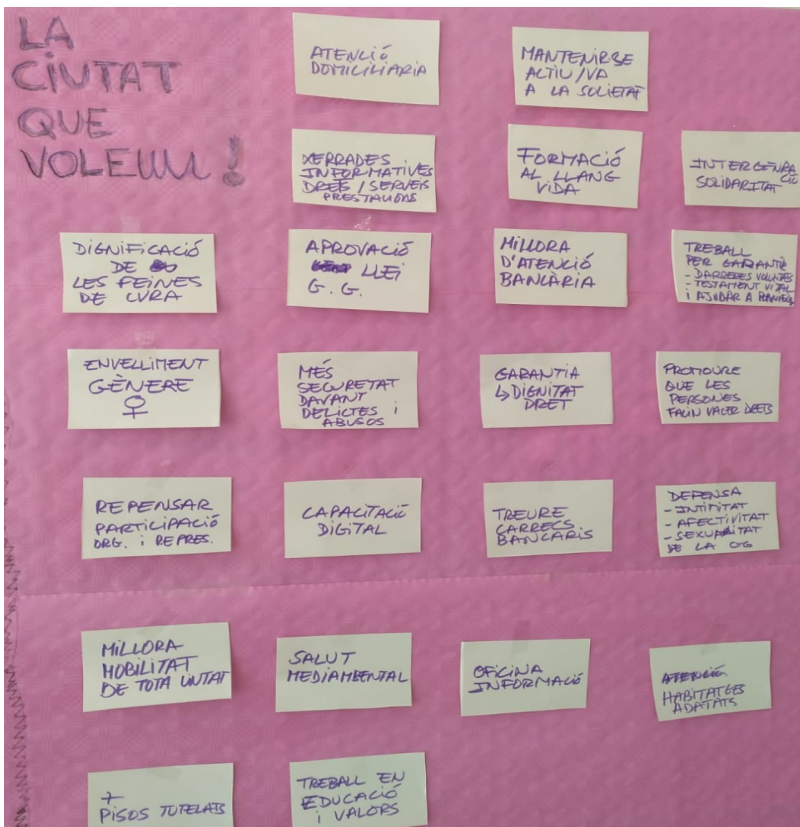 LA
CIUTAT
QUE
VOLEM!
ATENCIÓ
DOMICILIARIA
MANTENIRSE
ACTIU/VA
A LA SOCIETAT
XERRADES
INFORMATIVES
DRETS / SERVEIS
PRESTACIONS
FORMACIÓ
AL LLANG
VIDA
INTERGENRA
CIÓ
SOLIDARITAT
DIGNIFICACIÓ
DE
LES FEINES
DE CURA
APROVACIÓ
LLEI
G. G.
MILLORA
D'ATENCIÓ
BANCÀRIA
TREBALL
PER GARANTIR
- DARRERES VOLUNTATS
- TESTAMENT VITAL
I AJUDAR A
ENVELLIMENT
GÈNERE
♀
MÉS
SEGURETAT
DAVANT
DELICTES i
ABUSOS
GARANTIA
↳ DIGNITAT
DRET
PROMOURE
QUE LES
PERSONES
FACIN VALER DRETS
REPENSAR
PARTICIPACIÓ
ORG. i REPRES.
CAPACITACIÓ
DIGITAL
TREURE
CARRECS
BANCARIS
DEFENSA
- INTIMITAT
- AFECTIVITAT
- SEXUALITAT
DE LA GG
MILLORA
MOBILITAT
DE TOTA
SALUT
MEDIAMBIENTAL
OFICINA
INFORMACIÓ
ATENCIÓ
HABITATGES
ADATATS
+
PISOS TUTELATS
TREBALL EN
EDUCACIÓ
i VALORS